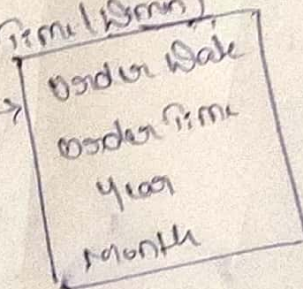 Time (Dimn)
Order Date
Order Time
Year
Month